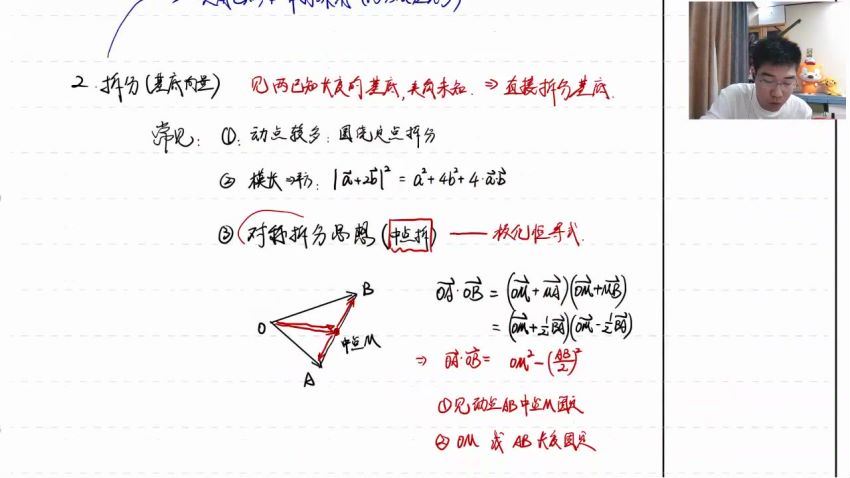 2. 拆分(基底向量) 见两已知长度的基底,夹角未知. ⇒ 直接拆分基底.
常见: ①: 动点较多: 围绕定点拆分
② 模长⇒平方: |a⃗+2b⃗|² = a²+4b²+4·a⃗·b⃗
③ 对称拆分思想(中点拆) —— 极化恒等式.
B
O
中点M
A
OA⃗·OB⃗ = (OM⃗+MA⃗)(OM⃗+MB⃗)
= (OM⃗+½BA⃗)(OM⃗-½BA⃗)
⇒ OA⃗·OB⃗ = OM²-(AB/2)²
①见动点AB中点M固定
② OM 或 AB长度固定